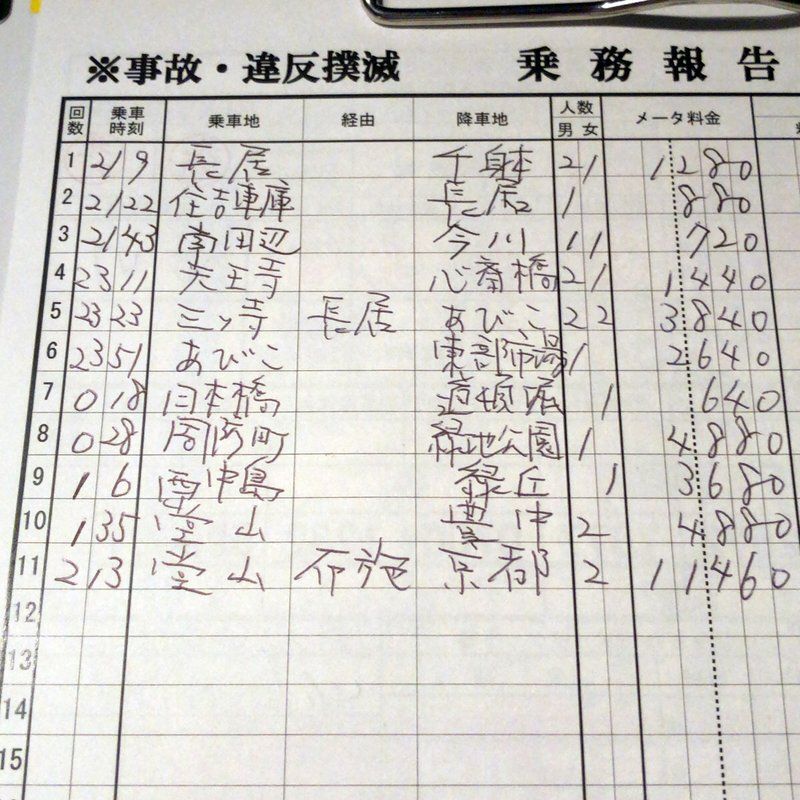 ※事故・違反撲滅 乗務報告
回数 乗車時刻 乗車地 経由 降車地 人数 男 女 メータ料金
1 21 9 長居 千躰 2 1 1280
2 21 22 住吉車庫 長居 1 880
3 21 43 南田辺 今川 1 1 720
4 23 11 天王寺 心斎橋 2 1 1440
5 23 23 三ッ寺 長居 あびこ 2 2 3840
6 23 51 あびこ 東部市場 1 2640
7 0 18 日本橋 道頓堀 1 640
8 0 28 周防町 緑地公園 1 4880
9 1 6 堂山 緑丘 1 3680
10 1 35 堂山 豊中 2 4880
11 2 13 堂山 布施 京都 2 11460
12
13
14
15